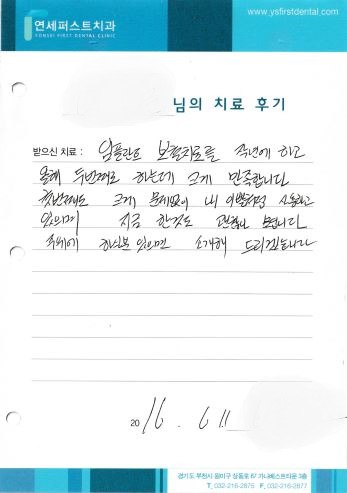 연세퍼스트치과
YONSEI FIRST DENTAL CLINIC
www.ysfirstdental.com
님의 치료 후기
받으신 치료 : 임플란트 보철치료를 작년에 하고
올해 두번째로 하는데 크게 만족합니다
첫번째도 크게 문제없이 내 이빨처럼 사용하고
있으며 지금 한것도 괜찮아 보입니다
주위에 하실분 있으면 소개해 드리겠습니다
2016. 6 11
경기도 부천시 원미구 상동로 87 가나베스트타운 3층
T. 032-216-2875 F. 032-216-2877